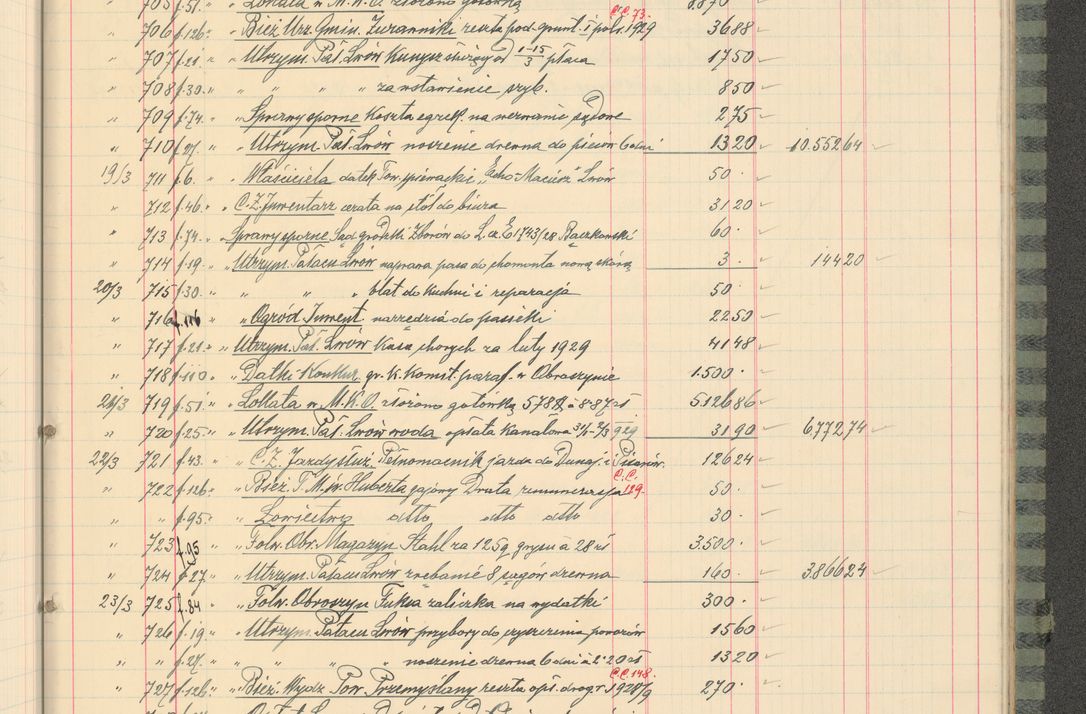 " 705 f.51. " Lokata w M.K.O. złożono gotówką 5.870
C.C. 73.
" 706 f.126. " Bież. Urz. Gmin. Zuranniki reszta pod. grunt. i półr. 1929 3688
" 707 f.21. " Utrzym. Pał. Lwów Kunysz służący od 1-15/3 płaca 1750
" 708 f.30. " " " " za wstawienie szyb. 850
" 709 f.74. " Sprawy sporne Koszta egzek. na wezwanie sądowe 275
" 710 f.27. " Utrzym. Pał. Lwów noszenie drewna do pieców 6 dni 1320 10.55264
19/3 711 f.6. " Właściciela datek Tow. śpiewackie „Echo-Macierz" Lwów 50.
" 712 f.46. " C.Z. Inwentarz cerata na stół do biura 3120
" 713 f.74. " Sprawy sporne Sąd grodzki Zborów do L. cz. E 1743/28 Rączkowski 60.
" 714 f.19. " Utrzym. Pałacu Lwów naprawa pasa do chomonta nową skórą 3. 14420
20/3 715 f.30. " " " " blat do kuchni i reparacja 50.
" 716 f.116 " Ogród Inwent. narzędzia do pasieki 2250
" 717 f.21. " Utrzym. Pał. Lwów Kasa chorych za luty 1929 4148
" 718 f.110 " Datki Konkur. gr. k. Komit. paraf. w Obroszynie 1.500.
21/3 719 f.51. " Lokata w M.K.O. złożono gotówką 578 $ à 8.87 zł 5.12686
" 720 f.25. " Utrzym. Pał. Lwów woda opłata kanałowa 929 3190 6.77274
22/3 721 f.43. " C.Z. Jazdy służ. Pełnomocnik jazda do Dunaj. i Pisarów. 12624
C.C. 129.
" 722 f.126. " Bież. T. M. św. Huberta gajowy Druta remuneracja 50.
" " f.95. " Łowiectwo dtto dtto dtto 30.
" 723 f.95 " Folw. Obr. Magazyn Stahl za 125 q grysu à 28 zł 3.500.
" 724 f.27. " Utrzym. Pałacu Lwów zrębanie 8 sągów drzewa 160. 3.86624
23/3 725 f.84 " Folw. Obroszyn Fuksa zaliczka na wydatki 300.
" 726 f.19. " Utrzym. Pałacu Lwów przybory do czyszczenia powozów 1560
" " f.27. " " " " noszenie drewna 6 dni à 2.20 zł 1320
C.C. 148.
" 727 f.126. " Bież. Wydz. Pow. Przemyślany reszta opł. drog. r. 1928/9 270.